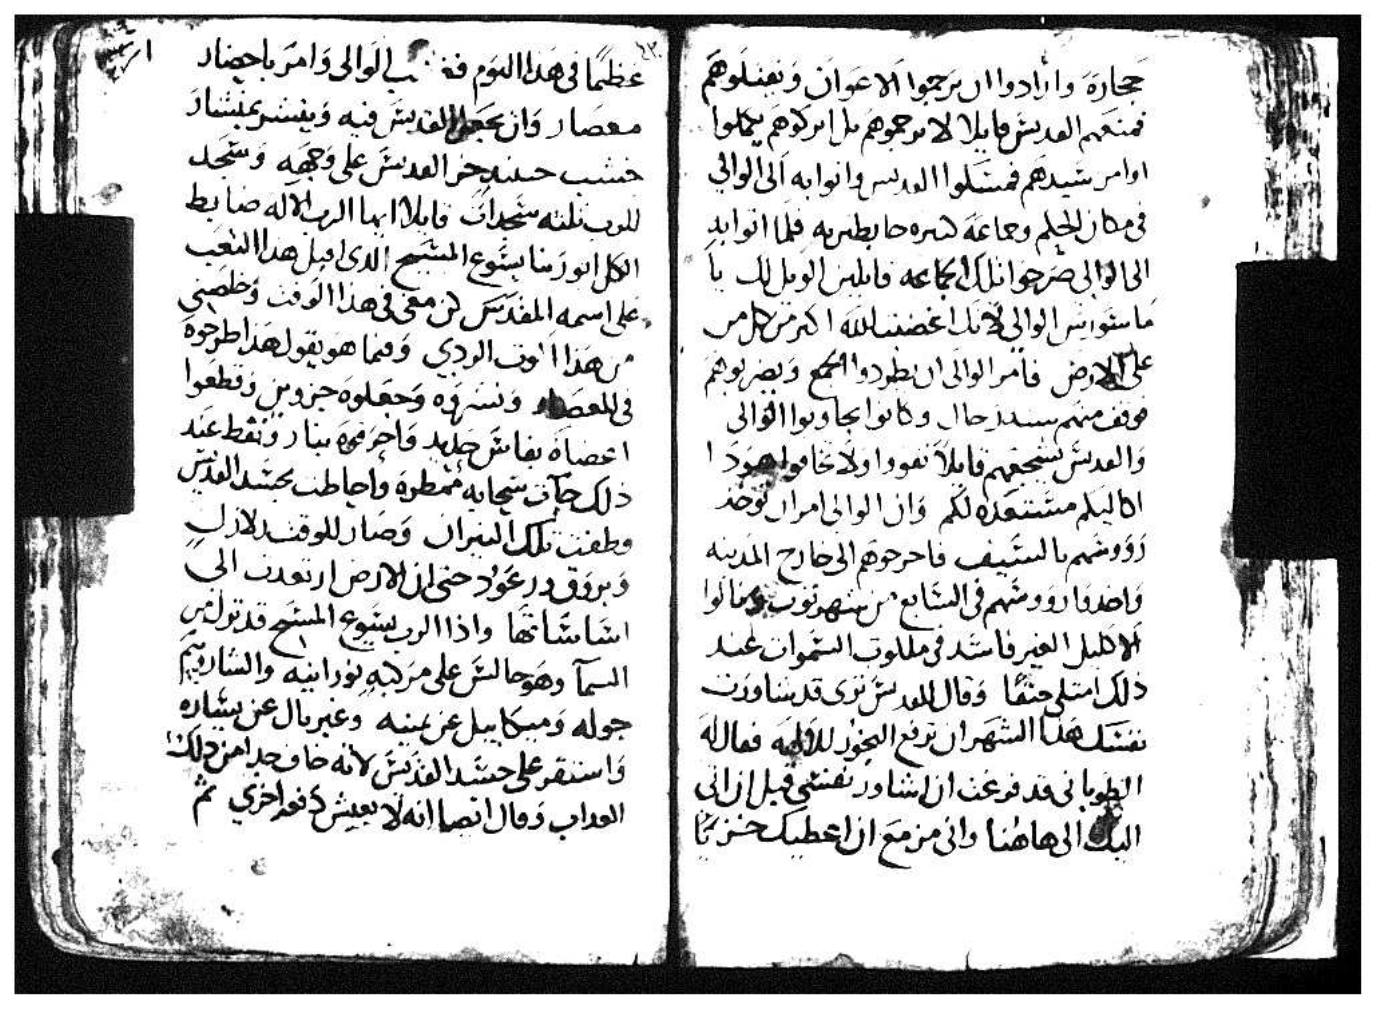 حجارة وارادوا ان يرجموا الاعوان ويقتلوهم
فمنعهم القديس قايلا لا ترجموهم بل اتركوهم يكملوا
اوامر سيدهم فمسكوا القديس واتوا به الى الوالي
في مكان الحكم وجماعة كتيره حايطين به فلما اتوا به
الى الوالي صرخوا تلك الجماعه قايلين الويل لك يا
الوالي لانك اغضبت الله اكتر من كل من
على الارض فامر الوالي ان يطردوا الجمع ويضربوهم
فوقف منهم رجال وكانوا يجاوبوا الوالي
والقديس يشجعهم قايلا تقووا ولا تخافوا هودا
اكاليلكم مستعده لكم وان الوالي امر ان توخد
رووسهم بالسيف فاخرجوهم الى خارج المدينه
واخدوا رووسهم في السابع من شهر توت ونالوا
الاكليل الغير فاسد في ملكوت السموات عند
ذلك امتلى حنقا وقال للقديس ترى قد شاورت
نفسك هذا الشهر ان ترفع البخور للالهه فقال له
الطوباني قد فرغت ان اشاور نفسي قبل ان اتي
اليك الى هاهنا واني مزمع ان اعطيك خزيا
عظيما في هذا اليوم الوالي وامر باحضار
معصار وان يجعل القديس فيه وينشر بمنشار
خشب حينيد خر القديس على وجهه وسجد
للرب تلته سجدات قايلا ايها الرب الاله ضابط
الكل ابو ربنا يسوع المسيح الدى اقبل هدا التعب
على اسمه المقدس كن معي في هذا الوقت وخلصني
من هذا الموت الردي وفيما هو يقول هدا طرحوه
في المعصار ونشروه وجعلوه جزوين وقطعوا
اعضاه بفاس حديد واحرقوه بنار ونفط عند
ذلك جات سحابه ممطره واحاطت بجسد القديس
وطفت تلك النيران وصار للوقت زلازل
وبروق ورعود حتى ان الارض ارتعدت الى
اساساتها واذا الرب يسوع المسيح قد نزل من
السما وهو جالس على مركبه نورانيه والشاروبيم
حوله وميكاييل عن يمينه وغبريال عن يساره
واستقر على جسد القديس لانه خاف جدا من دلك
العداب وقال ايضا انه لا يعيش دفعه اخري ثم